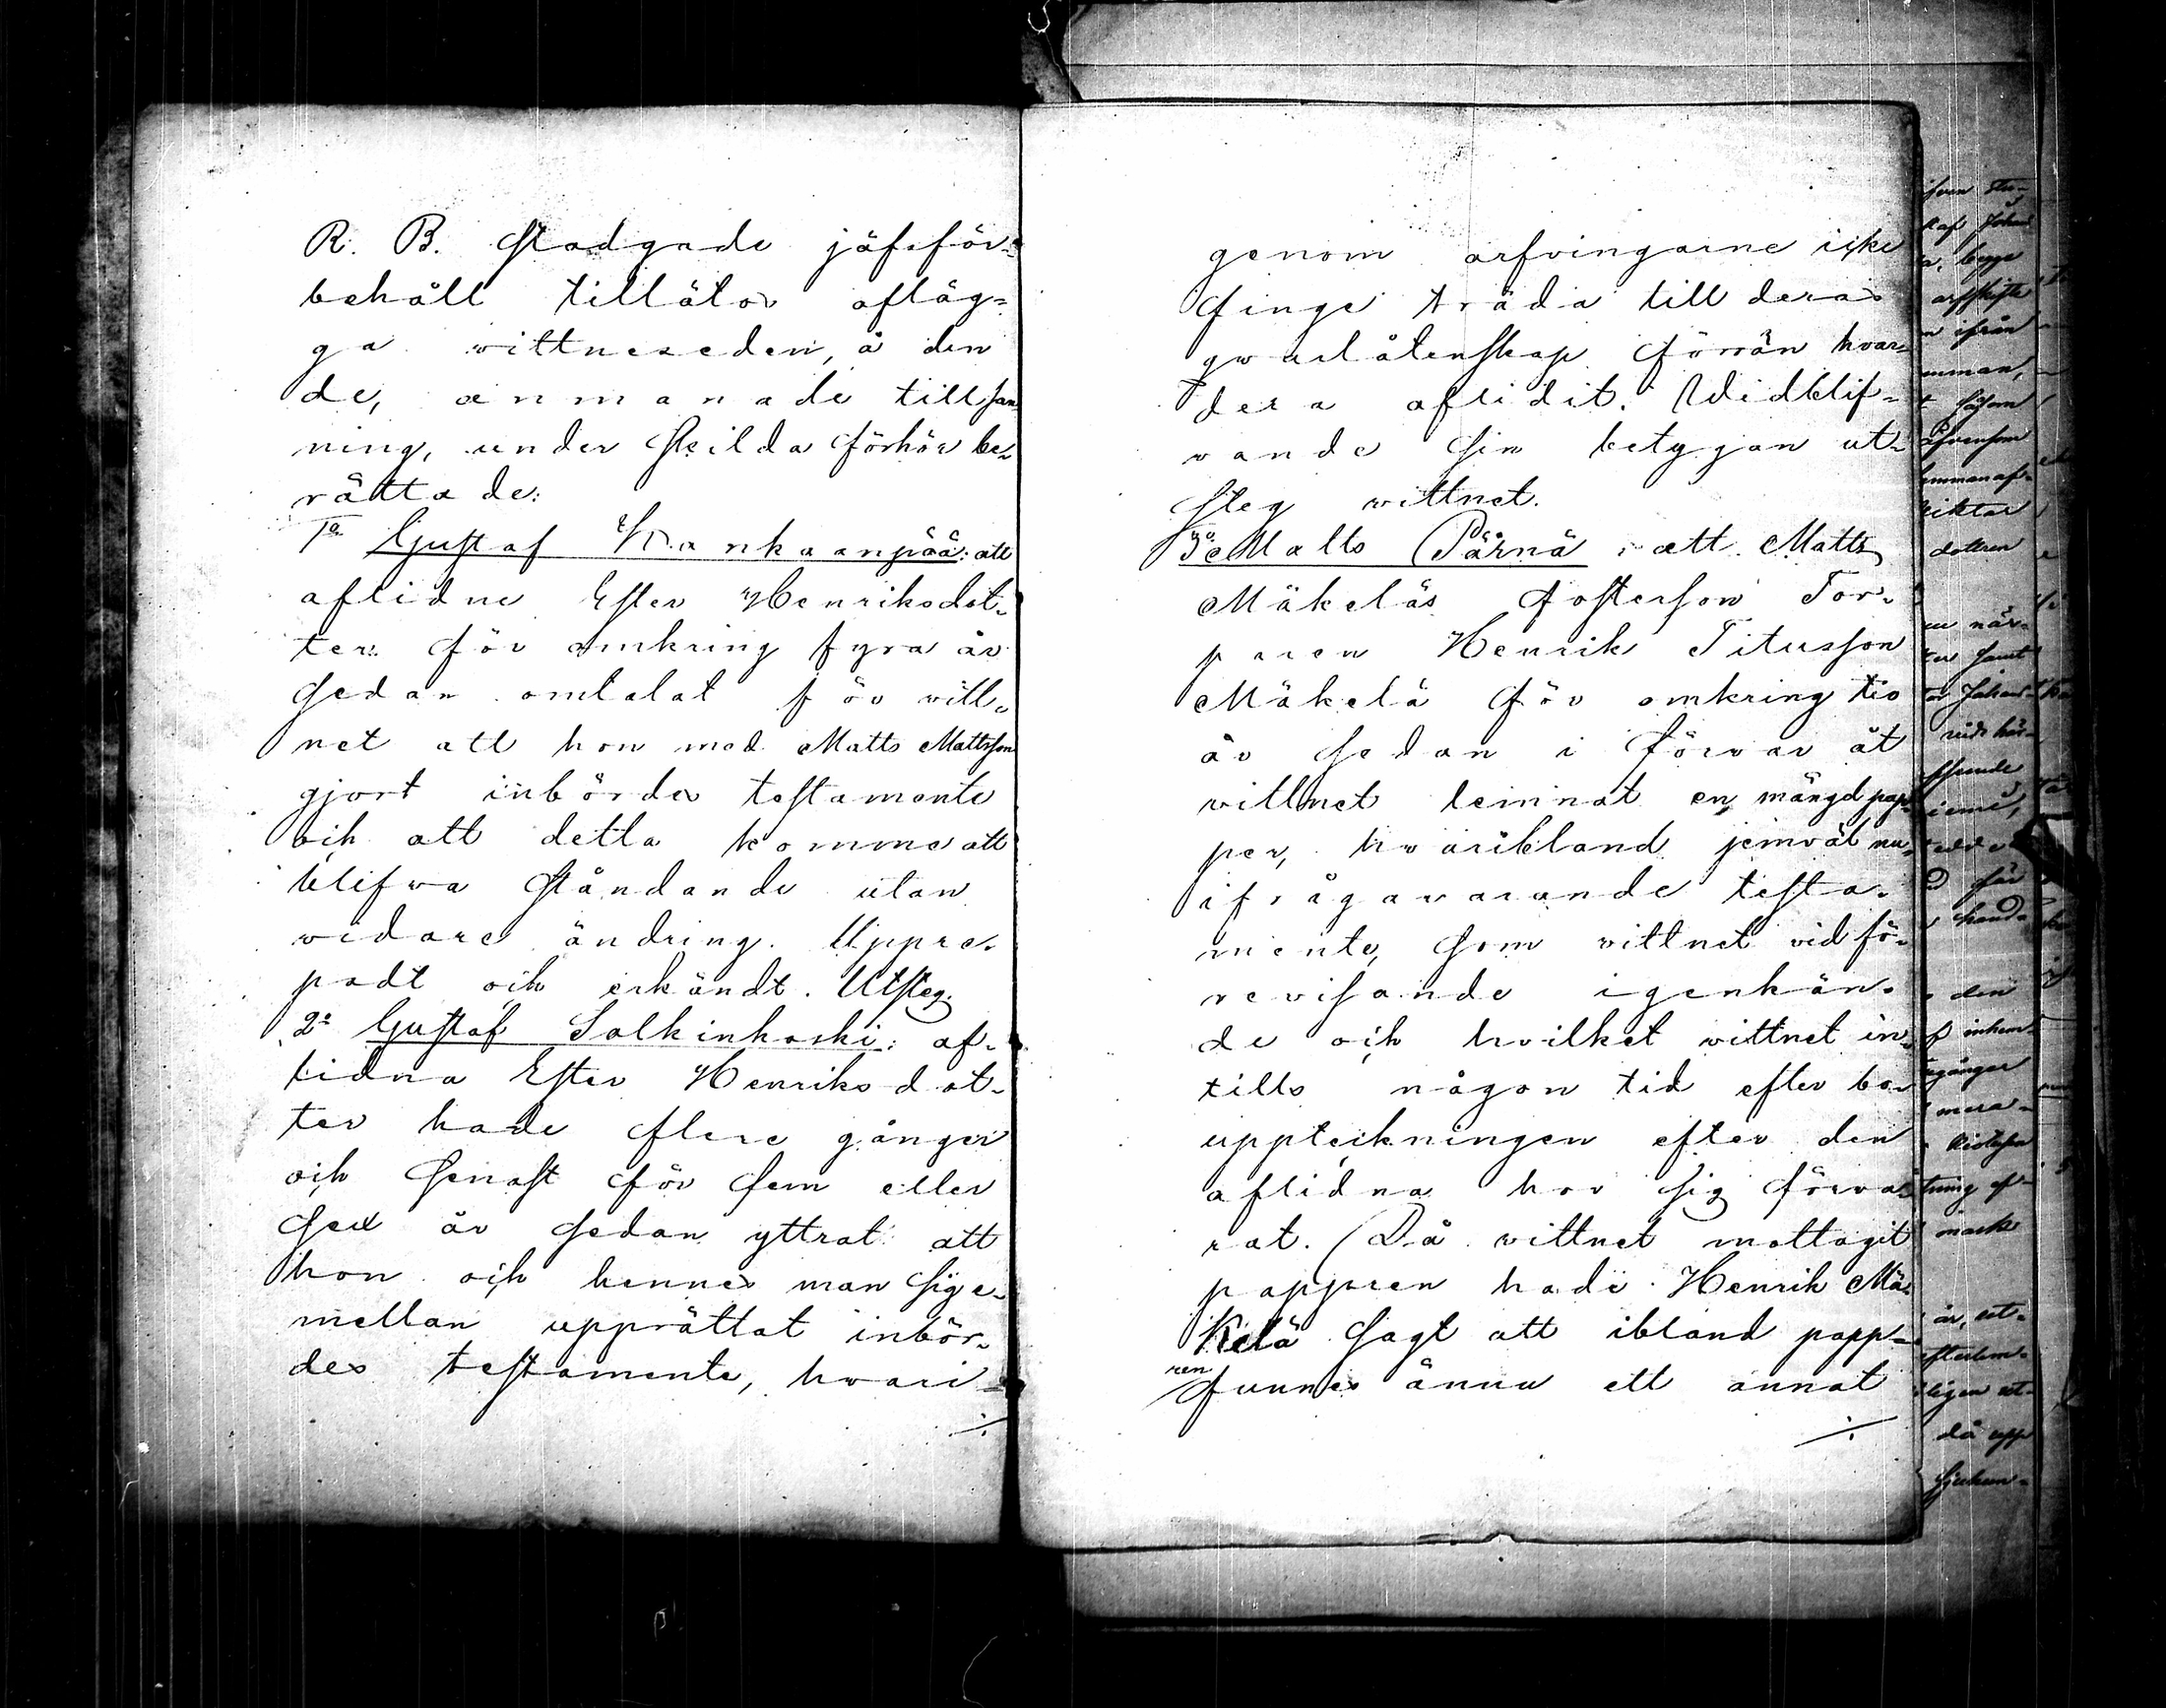 R. B. stadgade jäfsför-
behåll tillåtos afläg-
ga vittneseden, å den
de, anmanade till san
ning, under skilda förhör be-
rättade:
1o Gustaf Kankaanpää: att
aflidne Ester Henriksdot-
ter för omkring fyra år
sedan omtalat för vitt-
net att hon med Matts Mattsson
gjort inbördes testamente
och att detta komme att
blifva ståndande utan
vidare ändring. Uppre-
padt och erkändt. Utsteg.
2o Gustaf Salkinkoski: af-
lidna Ester Henriksdot-
ter hade flere gånger
och senast för fem eller
sex år sedan yttrat att
hon och hennes man sig e-
mellan upprättat inbör-
des testamente, hvari-
./.
genom arfvingarne icke
finge träda till deras
qvarlåtenskap förrän hvar-
dera aflidit. Widblif-
vande sin betygan ut-
steg vittnet.
3o Matts Pärnä: att Matts
Mäkeläs fosterson Tor-
paren Henrik Titusson
Mäkelä för omkring tio
år sedan i förvar åt
vittnet lemnat en mängd pap-
per, hvaribland jemväl nu
ifrågavarande testa-
mente, som vittnet vid fö-
revisande igenkän-
de och hvilket vittnet in-
tills någon tid efter bo-
uppteckningen efter den
aflidna hos sig förva-
rat. Då vittnet mottagit
pappren hade Henrik Mä-
kelä sagt att ibland papp-
ren funnes ännu ett annat
./.